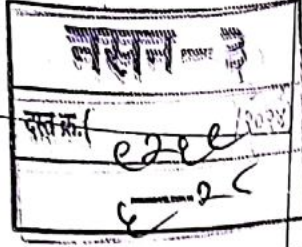 नसन - ३
दस्त क्र.( ९२९९ /२०२४
२८